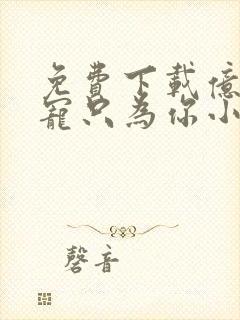 免費下載億
寵只為你小
磬音